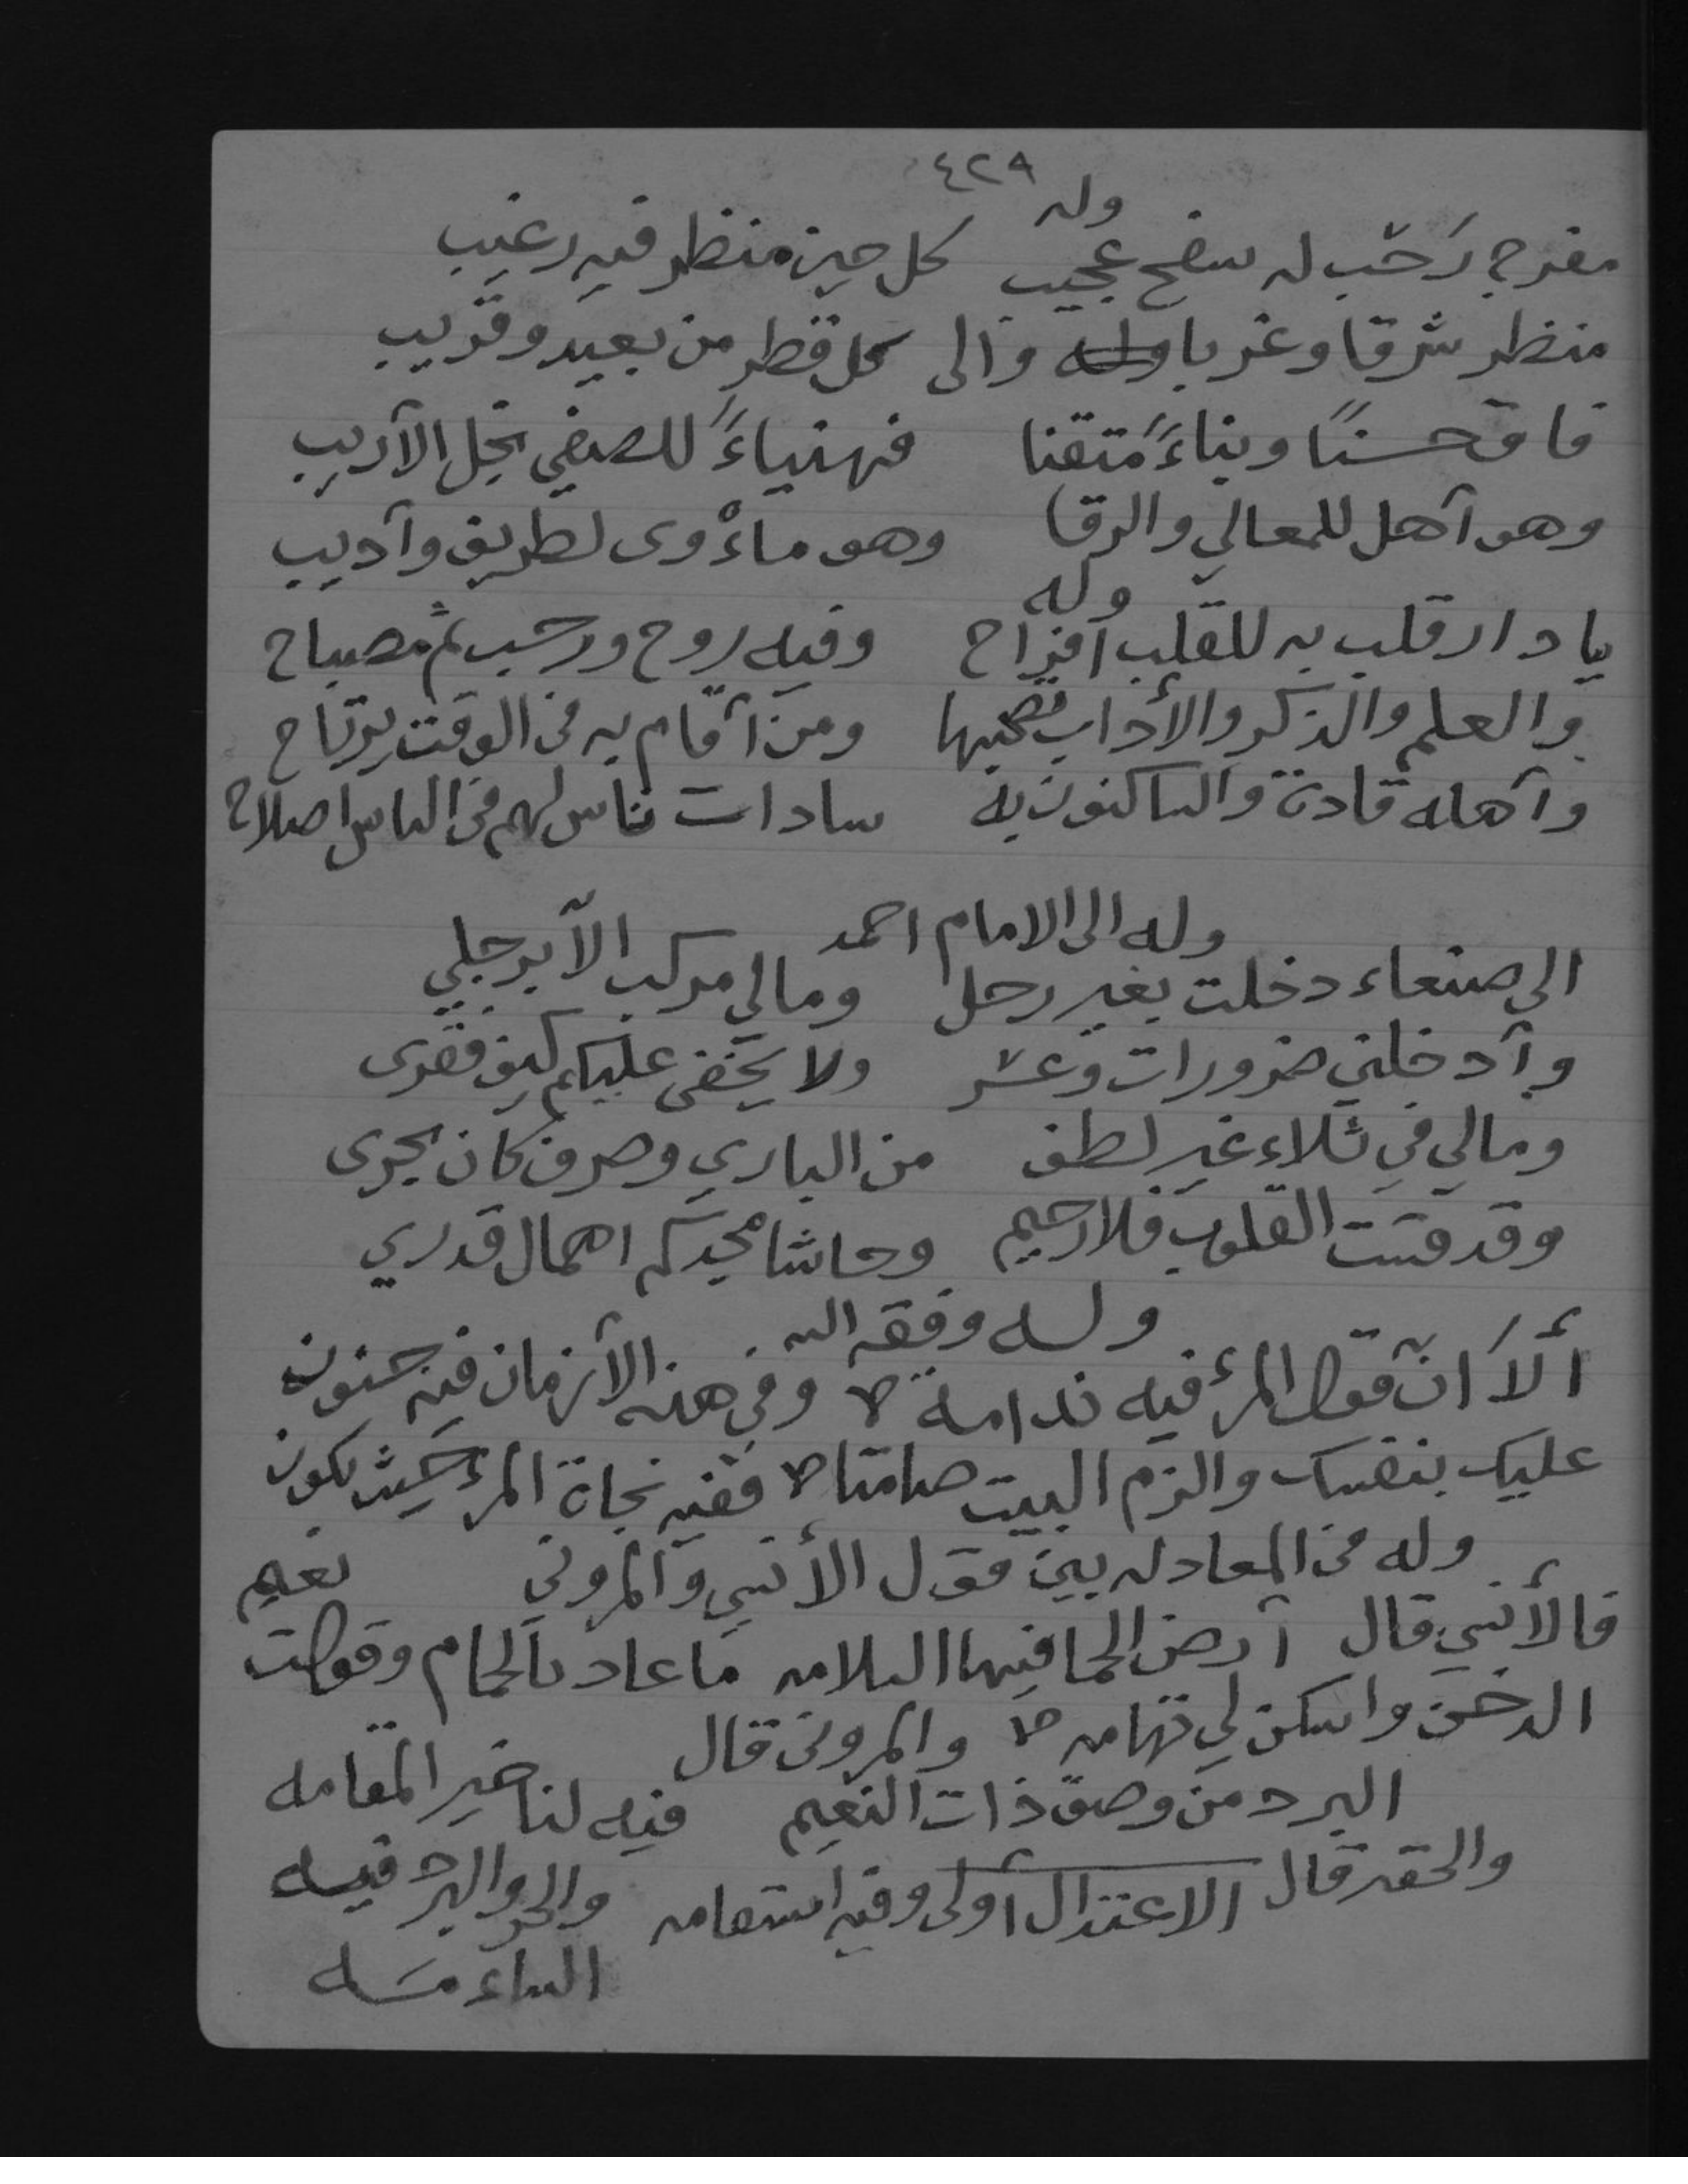 ٤٢٩
وله
مفرج رَحْب له سفح عجيب كل حين منظر فيه رغيب
منظر شرقا وغربا والى كل قطر من بعيد وقريب
فاق حسنًا وبناءً متقنا فهنياءً للصفي نجل الأريب
وهو آهل للمعالي والرقا وهو مأوى لطريف وآديب
وله
يا دار قلب به للقلب أفراح وفيه روح ورحب ثم مصباح
والعلم والذكر والأداب ومن آقام به في الوقت يرتاح
وآهله قادة والساكنون به سادات ناس لهم في الناس اصلاح
وله الى الامام احمد
الى صنعاء دخلت بغير رحل ومالي مركب الآ برجلي
وآدخلني ضرورات وعسر ولا يخفى عليكم كيف فقرى
ومالي في ثلاء غير لطف من الباري وصرف كان يجرى
وقد قست القلوب فلا رحيم وحاشا مجدكم اهمال قدري
وله وفقه الله
ألاَ انّ قول المرء فيه ندامة وفي هذه الآزمان فيه جنون
عليك بنفسك والزم البيت صامتا ففيه نجاة المرء حيث يكون
وله في المعادله بين مقول الأنسي والمروني نعيم
فالأنسي قال آرض الحما فيها السلامه ما عاد بالحمام وقولت
الدخن واسكن لي تهامه والمروني قال
البرد من وصف ذات النعيم فيه لنا خير المقامه
والحقير قال الاعتدال أولى وفيه استقامه والحر والبرد فيه
الساءمه